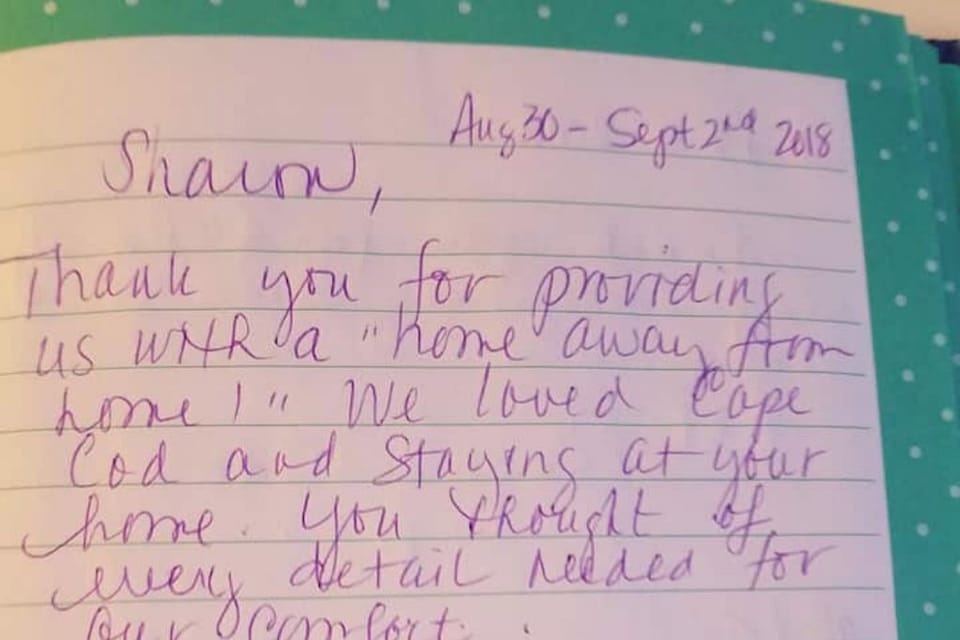 Aug 30 - Sept 2nd 2018
Sharon,
Thank you for providing
us with a "home away from
home!" We loved Cape
Cod and staying at your
home. You thought of
every detail needed for
our comfort.